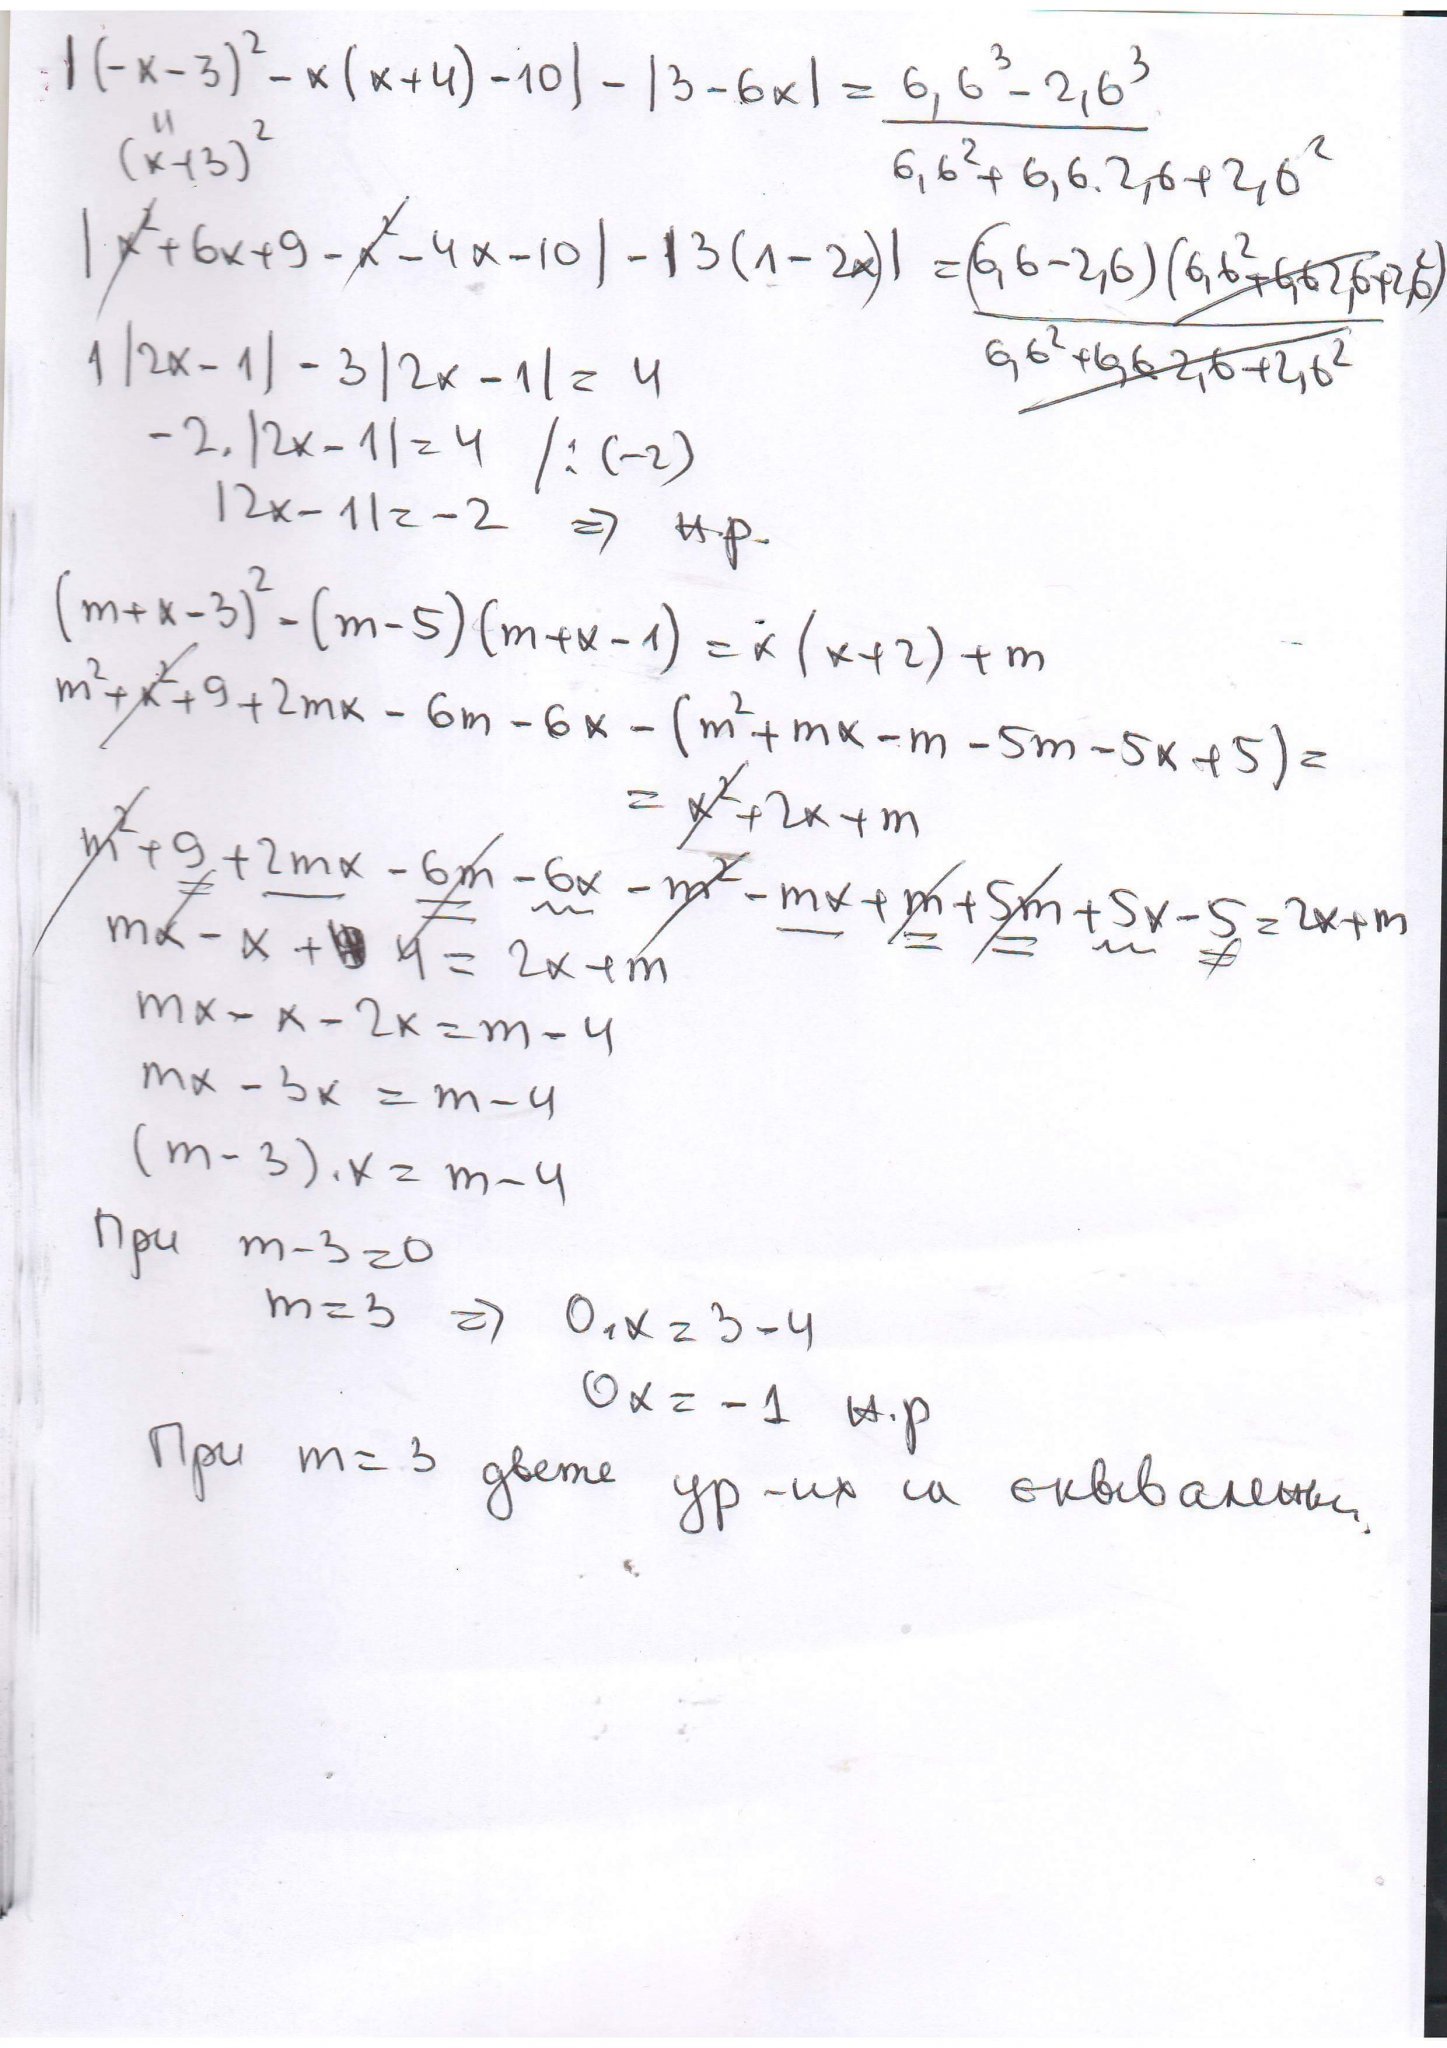 |(-x-3)² - x(x+4) -10| - |3-6x| = (6,6³ - 2,6³) / (6,6² + 6,6.2,6 + 2,6²)
"
(x+3)²
|x² + 6x + 9 - x² - 4x - 10| - |3(1-2x)| = (6,6-2,6)(6,6² + 6,6.2,6 + 2,6²) / (6,6² + 6,6.2,6 + 2,6²)
1|2x-1| - 3|2x-1| = 4
-2.|2x-1| = 4 /:(-2)
|2x-1| = -2 ⇒ н.р.
(m+x-3)² - (m-5)(m+x-1) = x(x+2) + m
m² + x² + 9 + 2mx - 6m - 6x - (m² + mx - m - 5m - 5x + 5) =
= x² + 2x + m
m² + 9 + 2mx - 6m - 6x - m² - mx + m + 5m + 5x - 5 = 2x + m
mx - x + 4 = 2x + m
mx - x - 2x = m - 4
mx - 3x = m - 4
(m-3).x = m - 4
При m-3=0
m=3 ⇒ 0.x = 3-4
0x = -1 н.р
При m=3 двете ур-ия са еквивалентни.